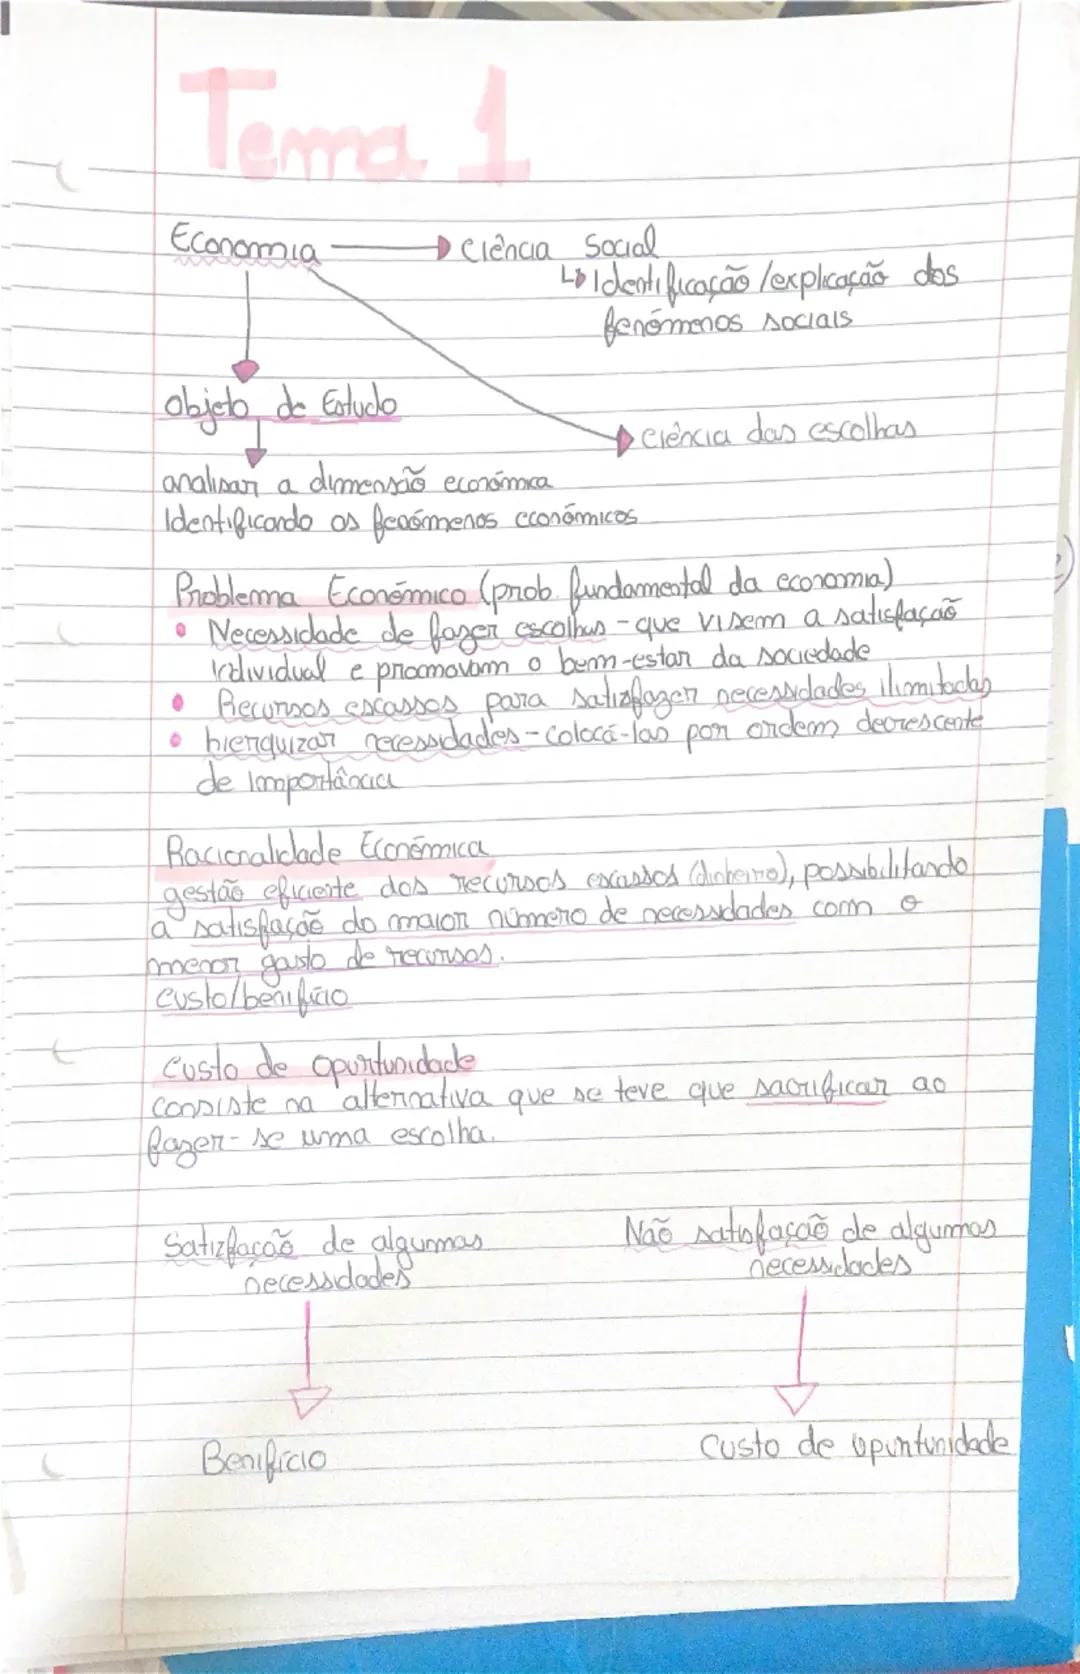 Tema 1
Economia → Ciência Social
↳ Identificação/explicação dos
fenómenos sociais
Objeto de Estudo
ciência das escolhas
analisar a dimensão económica
Identificando os fenómenos económicos
Problema Económico (prob. fundamental da economia)
• Necessidade de fazer escolhas - que visem a satisfação
individual e promovam o bem-estar da sociedade
• Recursos escassos para satizfazer necessidades ilimitadas
• hierquizar necessidades - colocá-las por ordem decrescente
de importância
Racionalidade Económica
gestão eficiente dos recursos escassos (dinheiro), possibilitando
a satisfação do maior número de necessidades com o
menor gasto de recursos.
Custo/benifício
Custo de opurtunidade
consiste na alternativa que se teve que sacrificar ao
fazer-se uma escolha.
Satizfação de algumas
necessidades
Não satisfação de algumas
necessidades
Benifício
Custo de opurtunidade